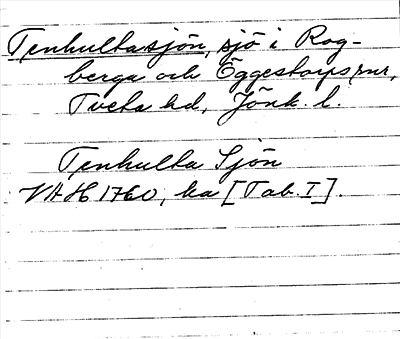 Tenhultasjön, sjö i Rog-
berga och Öggestorps snr,
Tveta hd, Jönk. l.
Tenhulta Sjön
VAH 1760, ka [Tab. I].